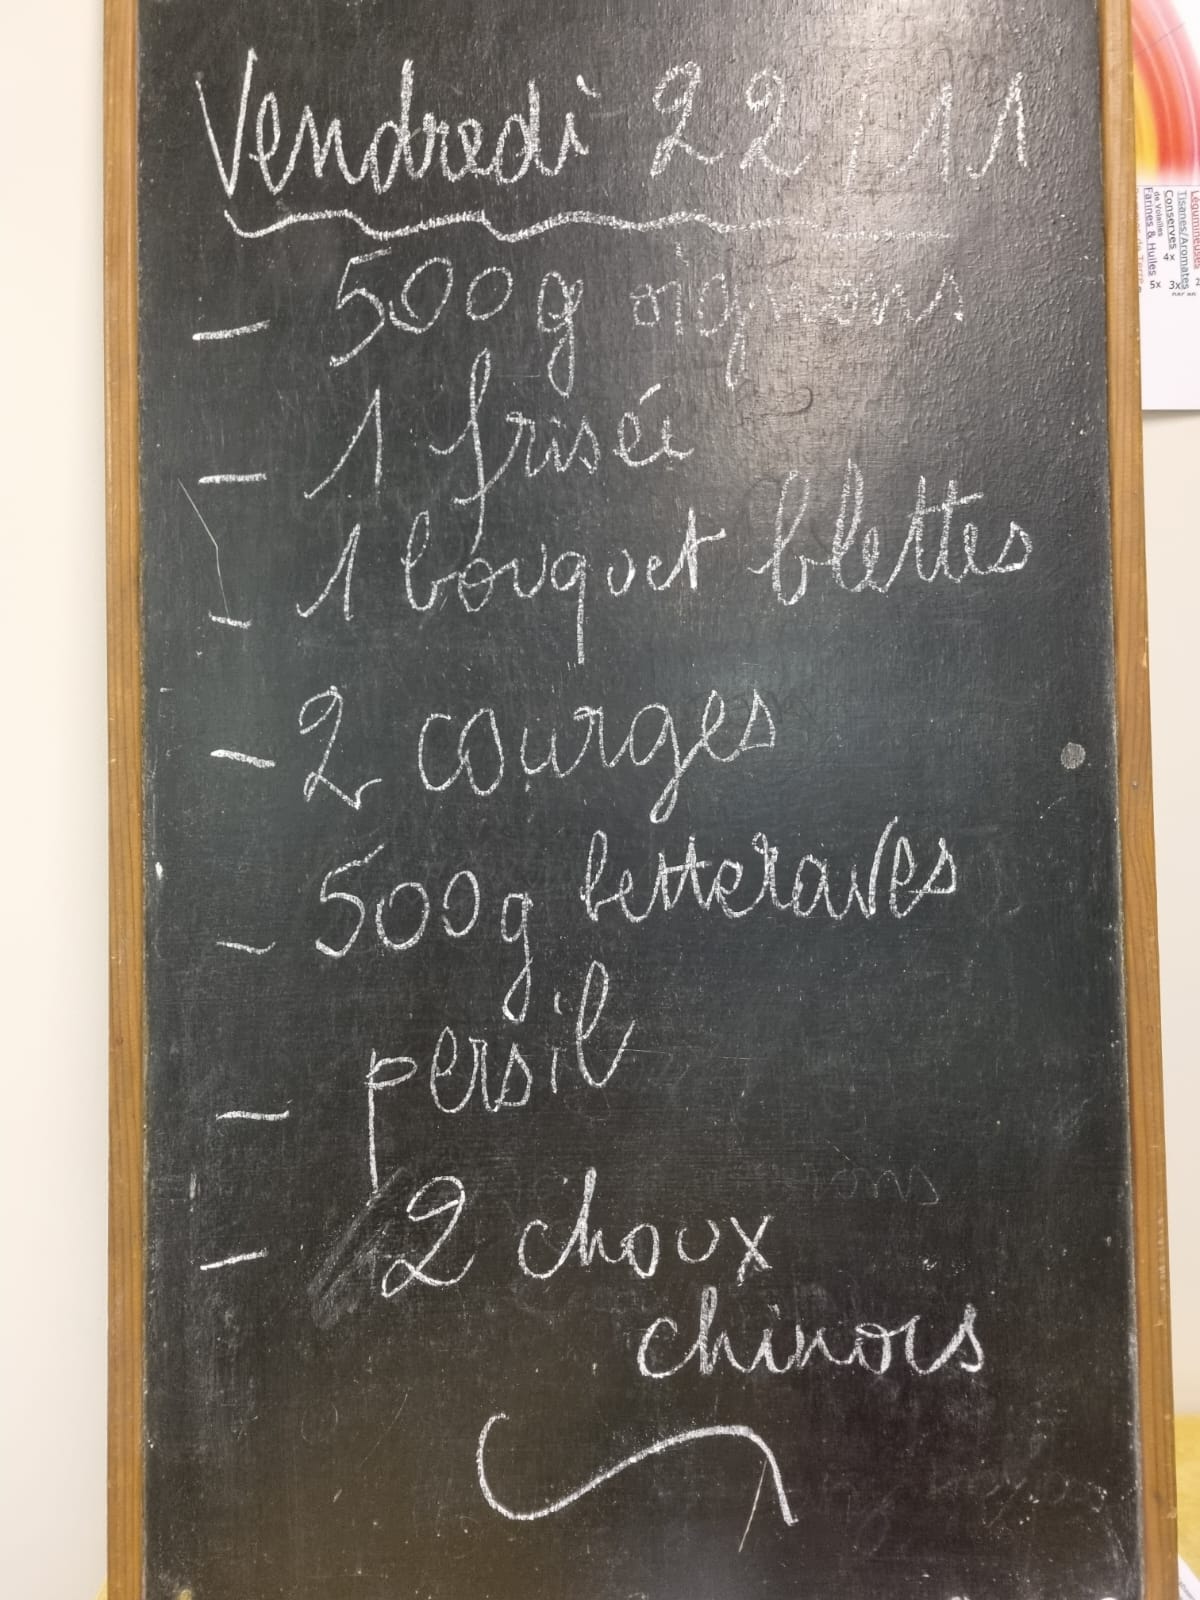 Vendredi 22/11
- 500g oignons
- 1 frisée
- 1 bouquet blettes
- 2 courges
- 500g betteraves
- persil
- 2 choux
chinois
Légumineuses
Tisanes/Aromates 3x
Conserves 4x
de Volailles
Farines & Huiles 5x